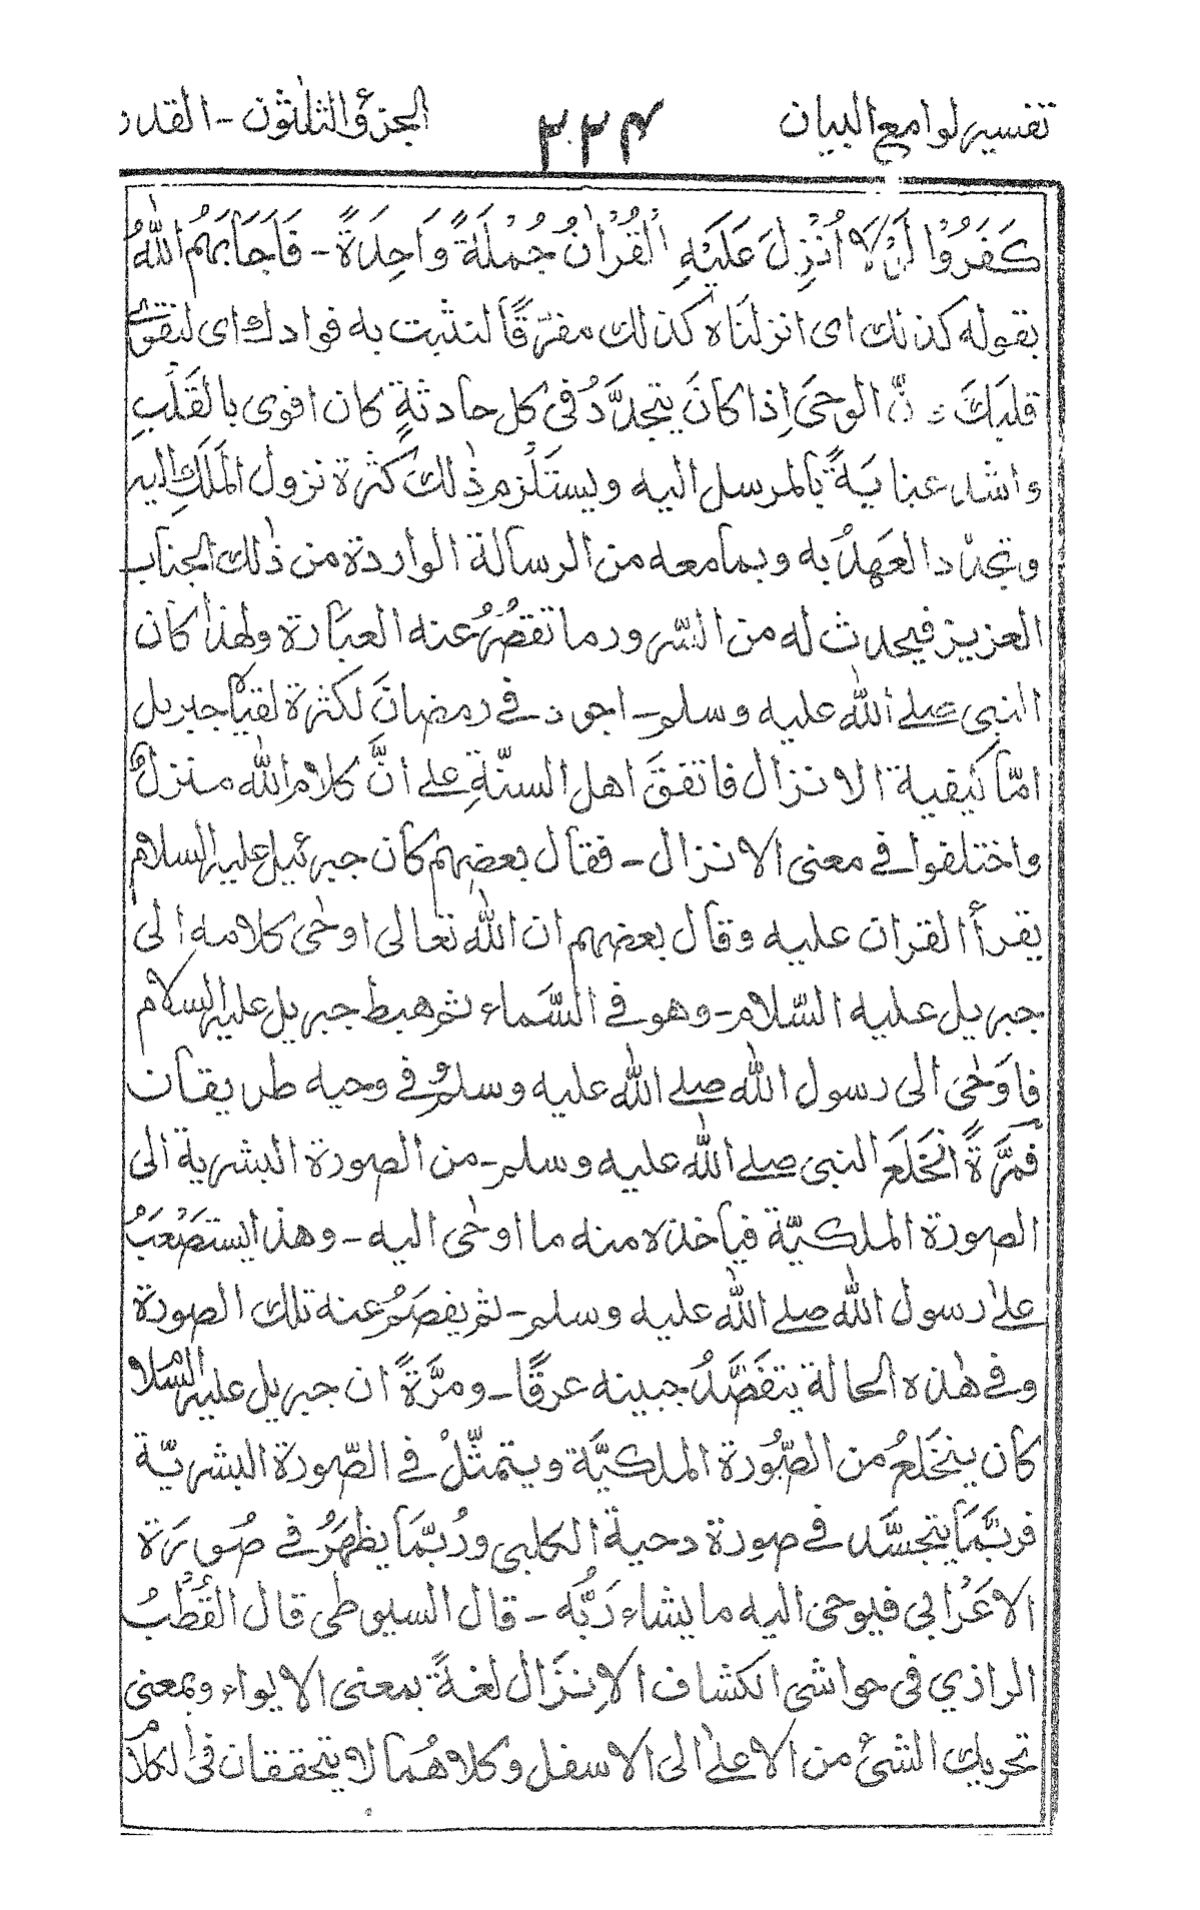 تفسير لوامع البيان ٢٢٤ الجزؤ الثلثون - القدر
كَفَرُوْا لَوْلَا اُنْزِلَ عَلَيْهِ الْقُرْاٰنُ جُمْلَةً وَاحِدَةً - فَاَجَابَهُمُ اللّٰهُ
بقوله كذلك اى انزلناه كذالك مفرّقًا لنثبت به فوادك اى لنقوّى
قلبكَ نّ الوحىَ اِذا كانَ يتجدَّدُ فى كل حادثةٍ كان اقوى بالقَلْبِ
واشد عنايَةً بالمرسل اليه ويستَلْزم ذٰلكَ كثرة نزول المَلَكِ اليه
وتجدّد العَهدُ به وبما معه من الرسالة الواردة من ذٰلك الجناب
العزيز فيحدث له من السّرور ما تقصُرُ عنه العبَارة ولهٰذا كان
النبى صلے اللّٰه عليه وسلم - اجود فے رمضانَ لكثرة لقياه جبريل
امّا كيفية الانزال فاتفقَ اهل السنّةِ علے انَّ كلام اللّٰه منزلٌ
واختلفوا فے معنى الانزال - فقال بعضهم كان جبرئيل عليه السلام
يقرأ القران عليه وقال بعضهم ان اللّٰه تعالى اوحٰى كلامه الى
جبريل عليه السّلام - وهو فے السَّماء ثم هبط جبريل عليه السلام
فاوَحٰى الى رسول اللّٰه صلے اللّٰه عليه وسلم و فے وحيه طريقان
فَمَرَّةً انْخَلَعَ النبى صلے اللّٰه عليه وسلم - من الصورة البشرية الى
الصورة الملكيّة فياخذه منه ما اوحٰى اليه - وهذا يستَصْعَبُ
علےٰ رسول اللّٰه صلے اللّٰه عليه وسلم - ثم يفصَمُ عنه تلك الصورة
وفے هٰذه الحالة يتفَصَّدُ جبينه عرقًا - ومرَّةً ان جبريل عليه السّلام
كان ينخَلعُ من الصُّورة الملكيَّة ويتمثّلْ فے الصّورة البشريّة
فربَّمَا يتجسَّد فے صورة دحية الكلبى ورُبَّمَا يظهَرُ فے صُورَة
الاعَرْابى فيوحى اليه ما يشاء رَبُّه - قال السيوطى قال القُطْبُ
الرازي فى حواشى الكشاف الاِنزَال لغةً بمعنى الايواء وبمعنى
تحريك الشئ من الاعلےٰ الى الاسفل وكلاهُمَا لا يتحققان فى الكلام